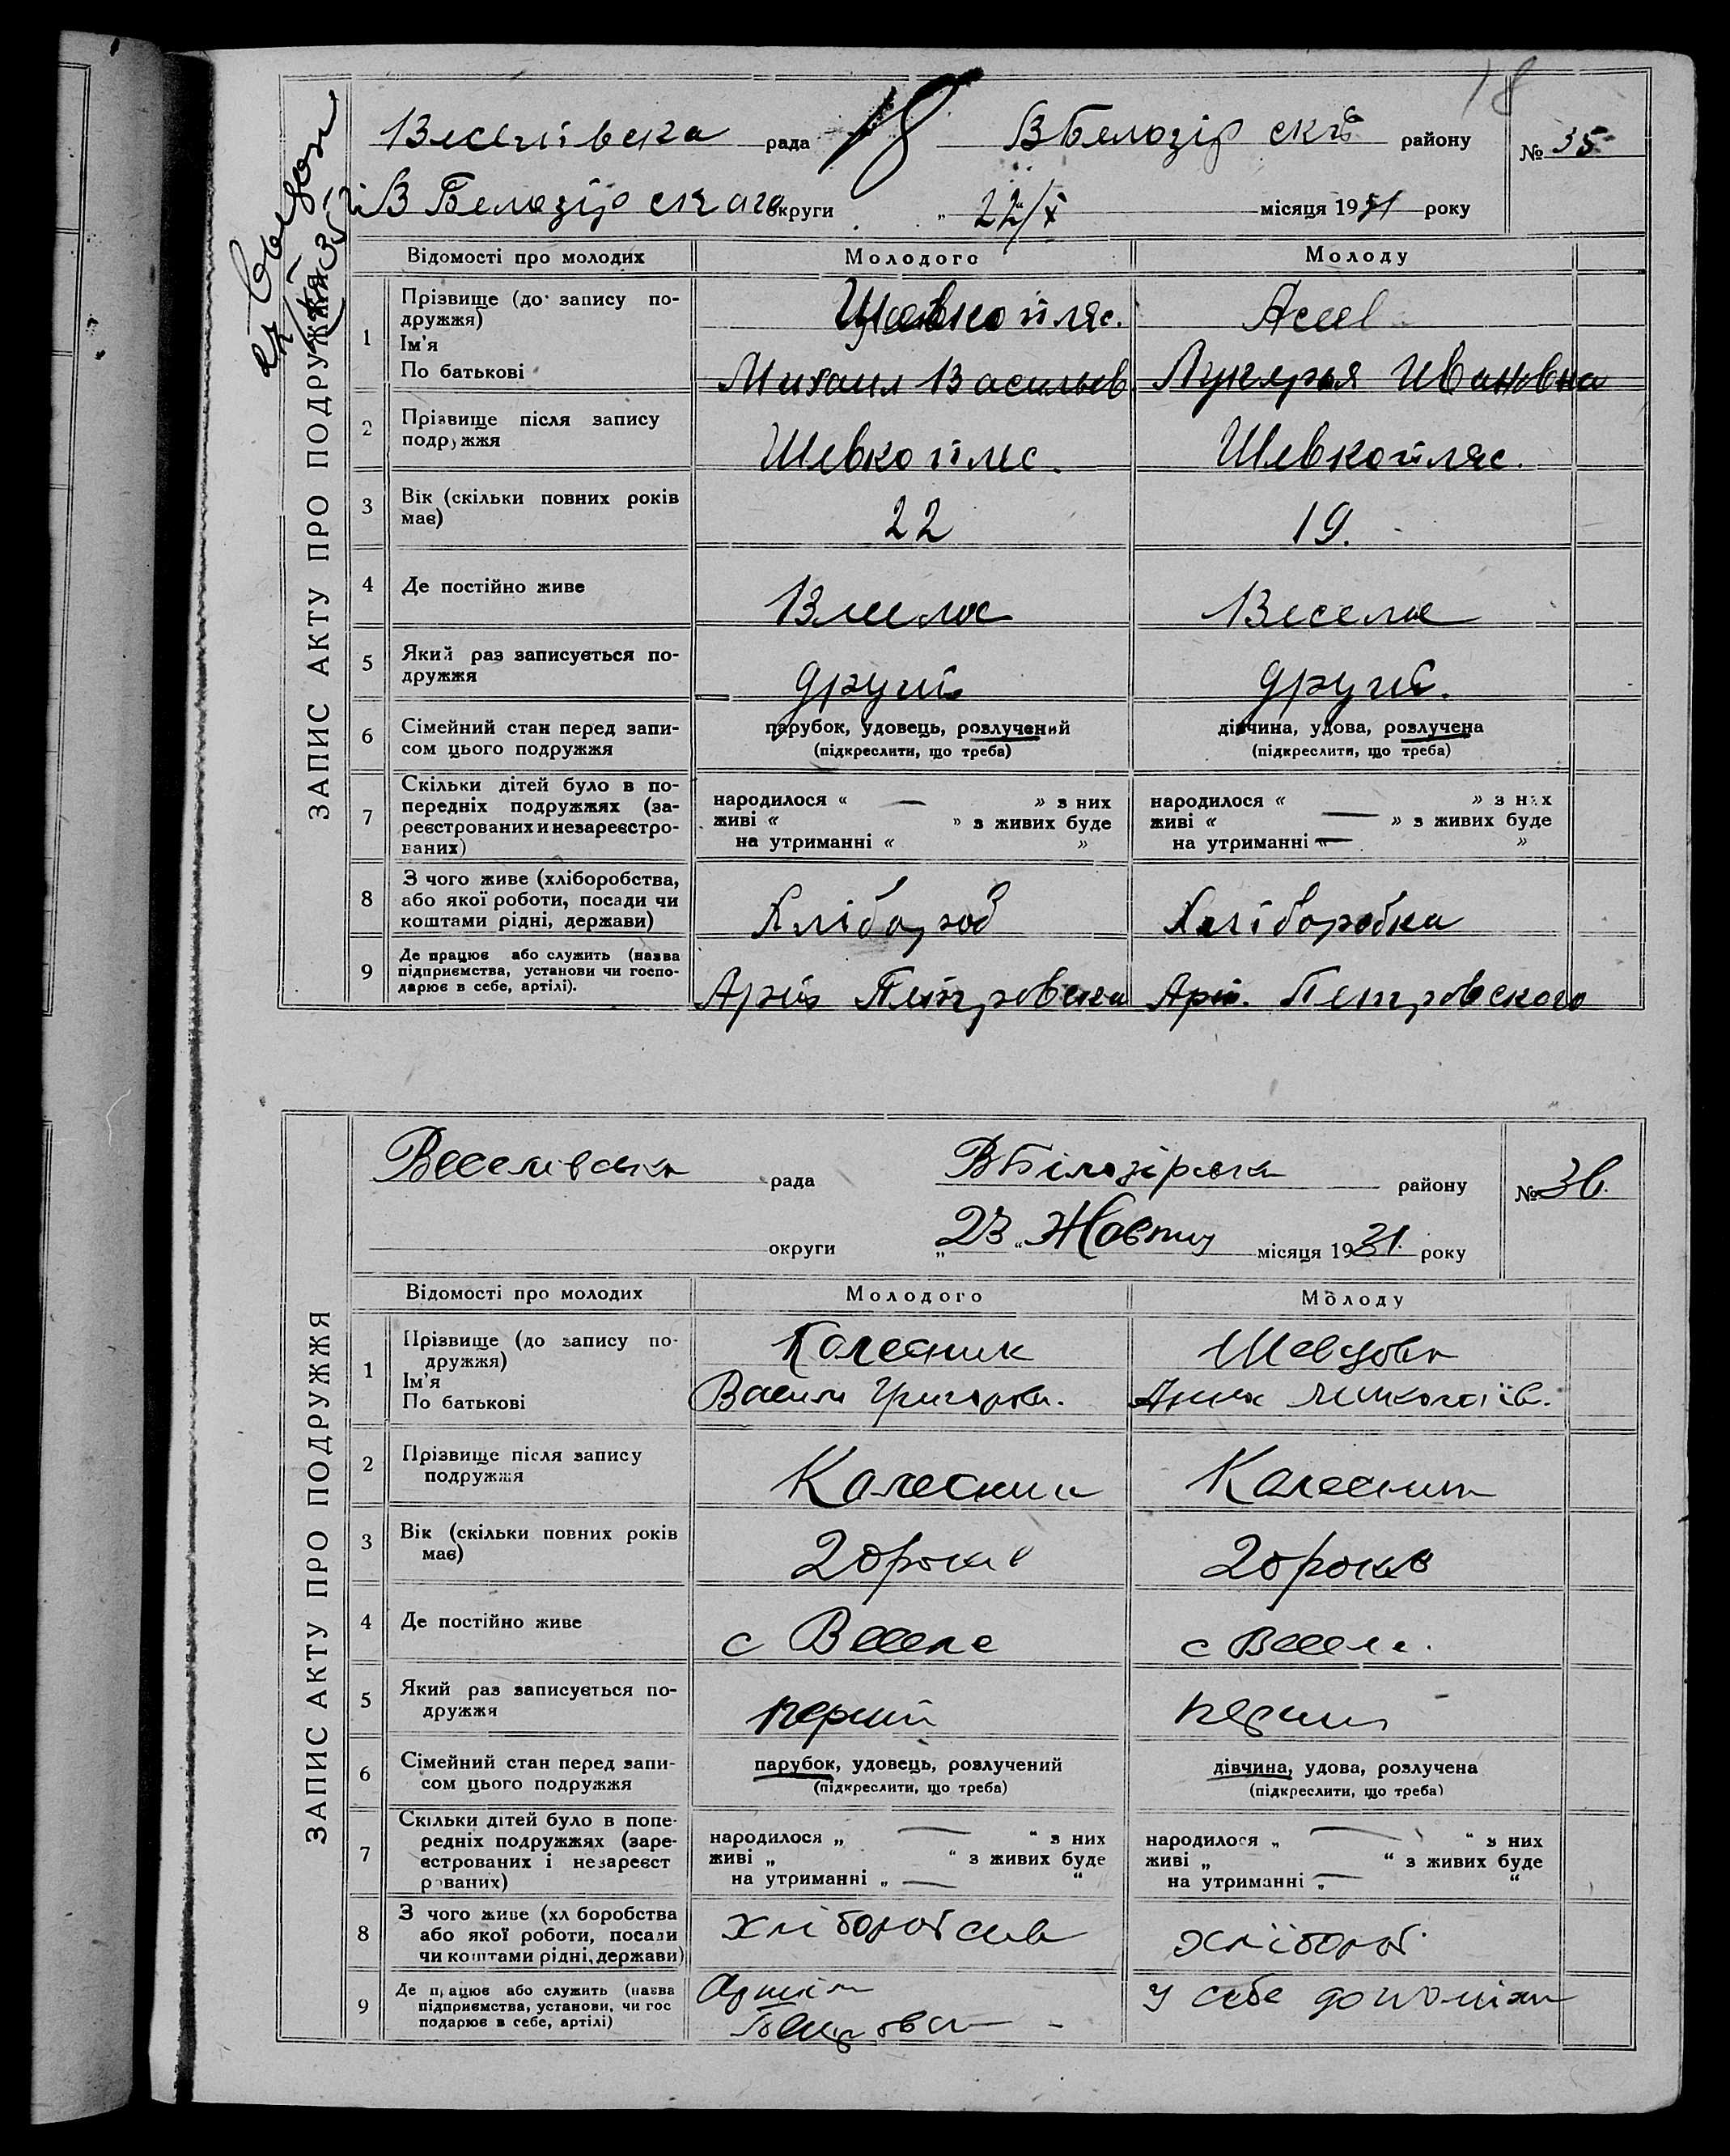 18
Веселівска рада 18 ВБелозірскго району № 35
ВБелозірскаго округи „ 22/X місяця 1931 року
ЗАПИС АКТУ ПРО ПОДРУЖЖЯ
Відомості про молодих Молодого Молоду
1 Прізвище (до запису подружжя) Шевкопляс.
Ім'я
По батькові Михаил Васильев Лукерья Ивановна
2 Прізвище після запису
подружжя Шевкопляс. Шевкопляс.
3 Вік (скільки повних років
має) 22 19.
4 Де постійно живе Веселое Веселое
5 Який раз записується по-
дружжя другий другий.
6 Сімейний стан перед запи- парубок, удовець, розлучений дівчина, удова, розлучена
сом цього подружжя (підкреслити, що треба) (підкреслити, що треба)
7 Скільки дітей було в по-
передніх подружжях (за- народилося « — » з них народилося « » з них
реєстрованих и незареєстро- живі « » з живих буде живі « — » з живих буде
ваних) на утриманні « » на утриманні « — »
8 З чого живе (хліборобства,
або якої роботи, посади чи
коштами рідні, держави) Хлібороб Хліборобка
9 Де працює або служить (назва
підприємства, установи чи госпо-
дарює в себе, артілі). Петровского
Веселівська рада ВБілозірська району № 36.
округи „23“ Жовтня місяця 1931. року
ЗАПИС АКТУ ПРО ПОДРУЖЖЯ
Відомості про молодих Молодого Молоду
1 Прізвище (до запису по- Колесник Шевцова
дружжя)
Ім'я
По батькові Василь Григоров. Анна Миколаїв.
2 Прізвище після запису
подружжя Колесник Колесник
3 Вік (скільки повних років
має) 20 років 20 років
4 Де постійно живе с Веселе с Веселе.
5 Який раз записується по-
дружжя перший перший
6 Сімейний стан перед запи- парубок, удовець, розлучений дівчина, удова, розлучена
сом цього подружжя (підкреслити, що треба) (підкреслити, що треба)
7 Скільки дітей було в попе-
редніх подружжях (заре- народилося „ — “ з них народилося „ — “ з них
єстрованих і незареєст живі „ “ з живих буде живі „ “ з живих буде
рованих) на утриманні „ — “ на утриманні „ — “
8 З чого живе (хл боробства
або якої роботи, посади
чи коштами рідні, держави) хліборобств хлібороб.
9 Де працює або служить (назва
підприємства, установи, чи гос у себе
подарює в себе, артілі)